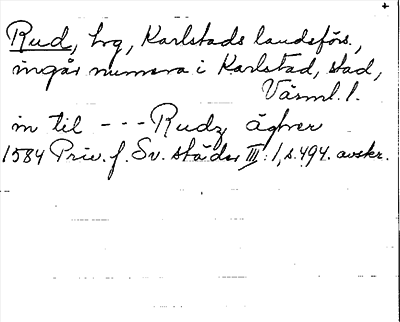 Rud, hrg, Karlstads landsförs.,
ingår numera i Karlstad, stad,
Värml. l.
in til --- Rudz ägher
1584 Priv. f. Sv. städer III: 1, s. 494. avskr.